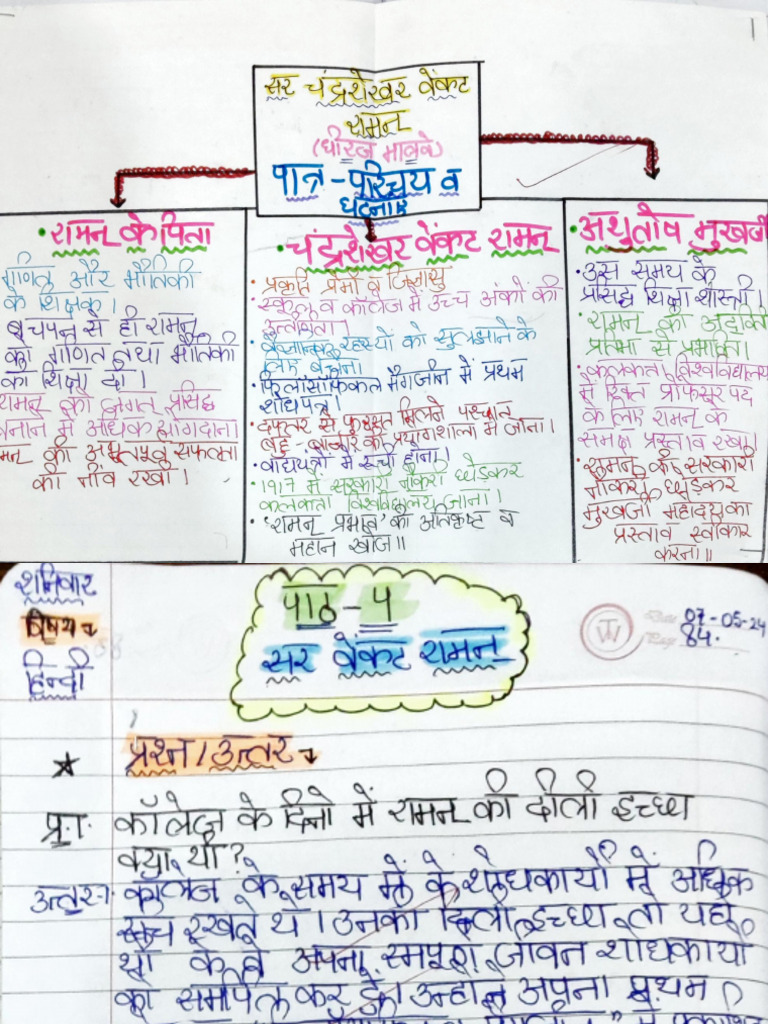 सर चंद्रशेखर वेंकट
रामन्
(धीरज मालवे)
पात्र-परिचय व
घटनाएँ
• रामन् के पिता
गणित और भौतिकी
के शिक्षक।
बचपन से ही रामन्
को गणित तथा भौतिकी
की शिक्षा दी।
रामन् को जगत प्रसिद्ध
बनाने में अधिक योगदान।
की अभूतपूर्व सफलता
की नींव रखी।
• चंद्रशेखर वेंकट रामन्
• प्रकृति प्रेमी व जिज्ञासु
• स्कूल व कॉलेज में उच्च अंकों की
उत्तीर्णता।
• वैज्ञानिक रहस्यों को सुलझाने के
लिए बेचैन।
• फिलॉसॉफिकल मैगजीन में प्रथम
शोधपत्र।
• दफ्तर से फुरसत मिलने पश्चात
बहू-बाजार की प्रयोगशाला में जाना।
• वाद्ययंत्रों में रूची होना।
• 1917 में सरकारी नौकरी छोड़कर
कलकत्ता विश्वविद्यालय जाना।
• 'रामन् प्रभाव' की उत्कृष्ट व
महान खोज॥
• अशुतोष मुखर्जी
• उस समय के
प्रसिद्ध शिक्षा शास्त्री।
• रामन् की अद्वितीय
प्रतिभा से प्रभावित।
• कलकत्ता विश्वविद्यालय
में रिक्त प्रोफेसर पद
के लिए रामन् के
समक्ष प्रस्ताव रखा।
• रामन् की सरकारी
नौकरी छोड़कर
मुखर्जी महोदय का
प्रस्ताव स्वीकार
करना॥
शनिवार
विषय
हिन्दी
पाठ-5
सर वेंकट रामन्
Date 07-05-24
Page 84.
प्रश्न/उत्तर
प्र.1. कॉलेज के दिनो में रामन् की दीली इच्छा
क्या थी?
उत्तर:1. कॉलेज के समय में वे शोधकार्यों में अधिक
रूची रखते थे। उनकी दिली इच्छा तो यही
थी कि वे अपना सम्पूर्ण जीवन शोधकार्यों
को समर्पित कर दें। उन्होंने अपना प्रथम